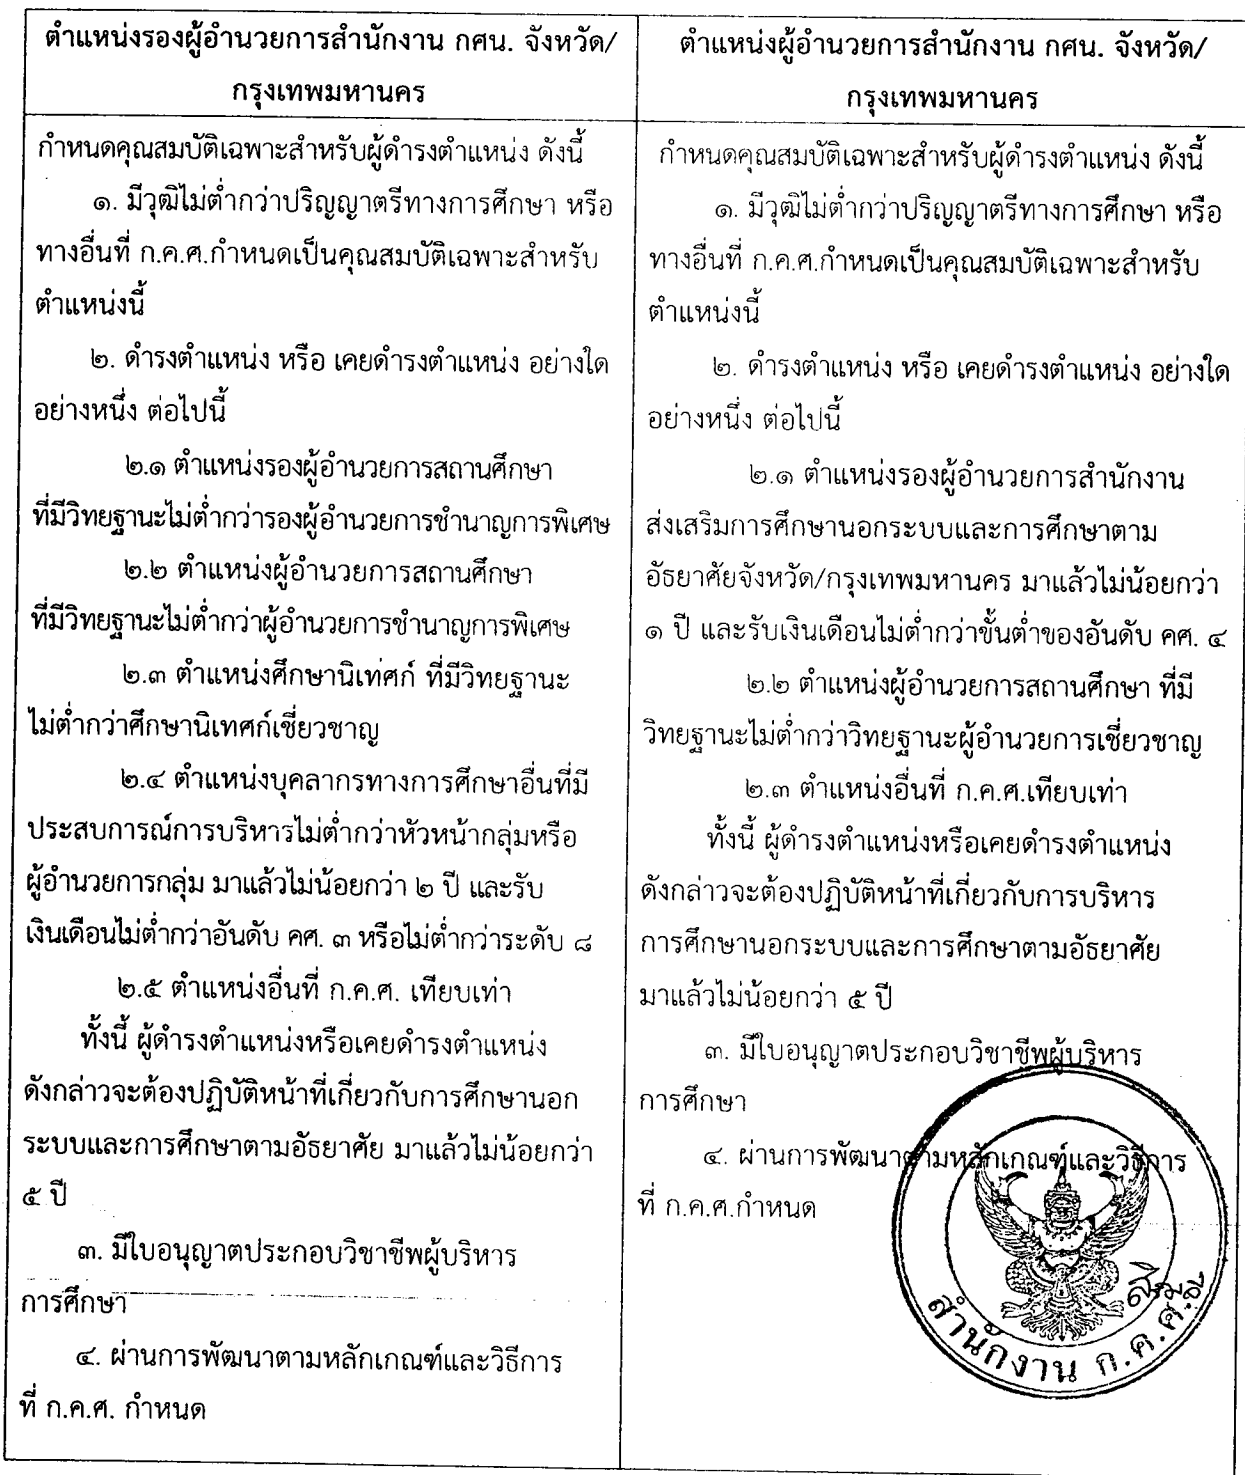 ตำแหน่งรองผู้อำนวยการสำนักงาน กศน. จังหวัด/
กรุงเทพมหานคร
กำหนดคุณสมบัติเฉพาะสำหรับผู้ดำรงตำแหน่ง ดังนี้
๑. มีวุฒิไม่ต่ำกว่าปริญญาตรีทางการศึกษา หรือ
ทางอื่นที่ ก.ค.ศ.กำหนดเป็นคุณสมบัติเฉพาะสำหรับ
ตำแหน่งนี้
๒. ดำรงตำแหน่ง หรือ เคยดำรงตำแหน่ง อย่างใด
อย่างหนึ่ง ต่อไปนี้
๒.๑ ตำแหน่งรองผู้อำนวยการสถานศึกษา
ที่มีวิทยฐานะไม่ต่ำกว่ารองผู้อำนวยการชำนาญการพิเศษ
๒.๒ ตำแหน่งผู้อำนวยการสถานศึกษา
ที่มีวิทยฐานะไม่ต่ำกว่าผู้อำนวยการชำนาญการพิเศษ
๒.๓ ตำแหน่งศึกษานิเทศก์ ที่มีวิทยฐานะ
ไม่ต่ำกว่าศึกษานิเทศก์เชี่ยวชาญ
๒.๔ ตำแหน่งบุคลากรทางการศึกษาอื่นที่มี
ประสบการณ์การบริหารไม่ต่ำกว่าหัวหน้ากลุ่มหรือ
ผู้อำนวยการกลุ่ม มาแล้วไม่น้อยกว่า ๒ ปี และรับ
เงินเดือนไม่ต่ำกว่าอันดับ คศ. ๓ หรือไม่ต่ำกว่าระดับ ๘
๒.๕ ตำแหน่งอื่นที่ ก.ค.ศ. เทียบเท่า
ทั้งนี้ ผู้ดำรงตำแหน่งหรือเคยดำรงตำแหน่ง
ดังกล่าวจะต้องปฏิบัติหน้าที่เกี่ยวกับการศึกษานอก
ระบบและการศึกษาตามอัธยาศัย มาแล้วไม่น้อยกว่า
๕ ปี
๓. มีใบอนุญาตประกอบวิชาชีพผู้บริหาร
การศึกษา
๔. ผ่านการพัฒนาตามหลักเกณฑ์และวิธีการ
ที่ ก.ค.ศ. กำหนด
ตำแหน่งผู้อำนวยการสำนักงาน กศน. จังหวัด/
กรุงเทพมหานคร
กำหนดคุณสมบัติเฉพาะสำหรับผู้ดำรงตำแหน่ง ดังนี้
๑. มีวุฒิไม่ต่ำกว่าปริญญาตรีทางการศึกษา หรือ
ทางอื่นที่ ก.ค.ศ.กำหนดเป็นคุณสมบัติเฉพาะสำหรับ
ตำแหน่งนี้
๒. ดำรงตำแหน่ง หรือ เคยดำรงตำแหน่ง อย่างใด
อย่างหนึ่ง ต่อไปนี้
๒.๑ ตำแหน่งรองผู้อำนวยการสำนักงาน
ส่งเสริมการศึกษานอกระบบและการศึกษาตาม
อัธยาศัยจังหวัด/กรุงเทพมหานคร มาแล้วไม่น้อยกว่า
๑ ปี และรับเงินเดือนไม่ต่ำกว่าขั้นต่ำของอันดับ คศ. ๔
๒.๒ ตำแหน่งผู้อำนวยการสถานศึกษา ที่มี
วิทยฐานะไม่ต่ำกว่าวิทยฐานะผู้อำนวยการเชี่ยวชาญ
๒.๓ ตำแหน่งอื่นที่ ก.ค.ศ.เทียบเท่า
ทั้งนี้ ผู้ดำรงตำแหน่งหรือเคยดำรงตำแหน่ง
ดังกล่าวจะต้องปฏิบัติหน้าที่เกี่ยวกับการบริหาร
การศึกษานอกระบบและการศึกษาตามอัธยาศัย
มาแล้วไม่น้อยกว่า ๕ ปี
๓. มีใบอนุญาตประกอบวิชาชีพผู้บริหาร
การศึกษา
๔. ผ่านการพัฒนาตามหลักเกณฑ์และวิธีการ
ที่ ก.ค.ศ.กำหนด
สำนักงาน ก.ค.ศ.